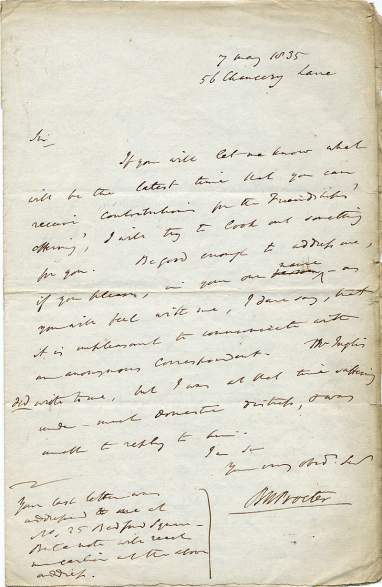 7 May 1835
56 Chancery Lane
Sir
If you will let me know what
will be the latest time that you can
receive contributions for the "Friendship's
Offering", I will try to look out something
for you. Be good enough to address me,
if you please, in your own name - as
you will feel with me, I dare say, that
it is unpleasant to communicate with
an anonymous correspondent. Mr Inglis
did write to me, but I was at that time suffering
under much domestic distress, & was
unable to reply to him.
I am Sir
Your very obedt Sert
BWProcter
Your last letter was
addressed to me at
No. 25 Bedford Square -
But a note will reach
me earlier at the above
address.